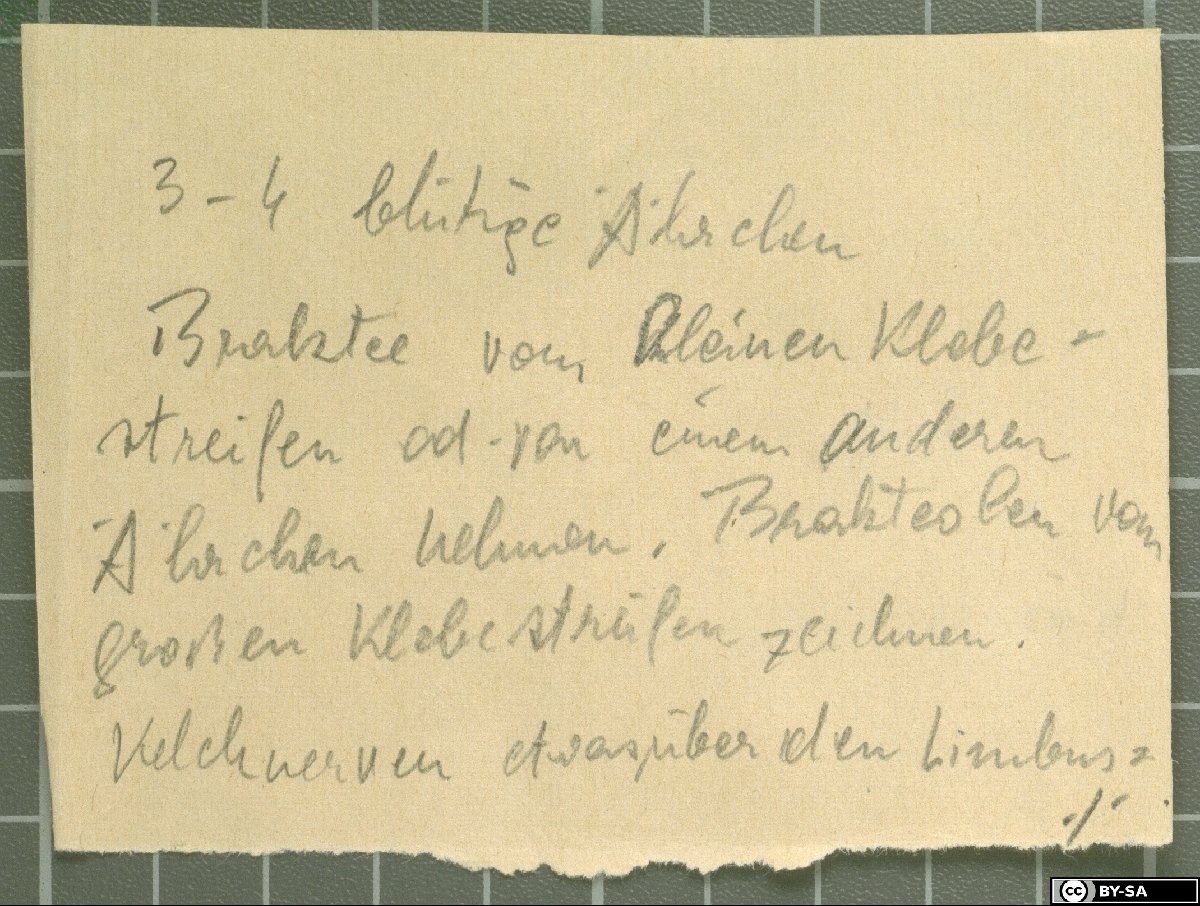 3-4 blütige Ährchen
Braktee vom kleinen Klebe-
streifen od. von einem anderen
Ährchen nehmen. Brakteolen vom
großen Klebestreifen zeichnen.
Kelchnerven etwas über den Limbus-
./.
BY-SA